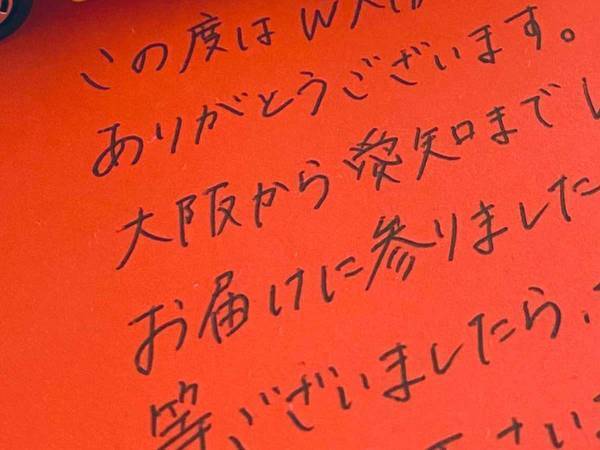 この度は
ありがとうございます。
大阪から愛知まで
お届けに参りました
等ございましたら、